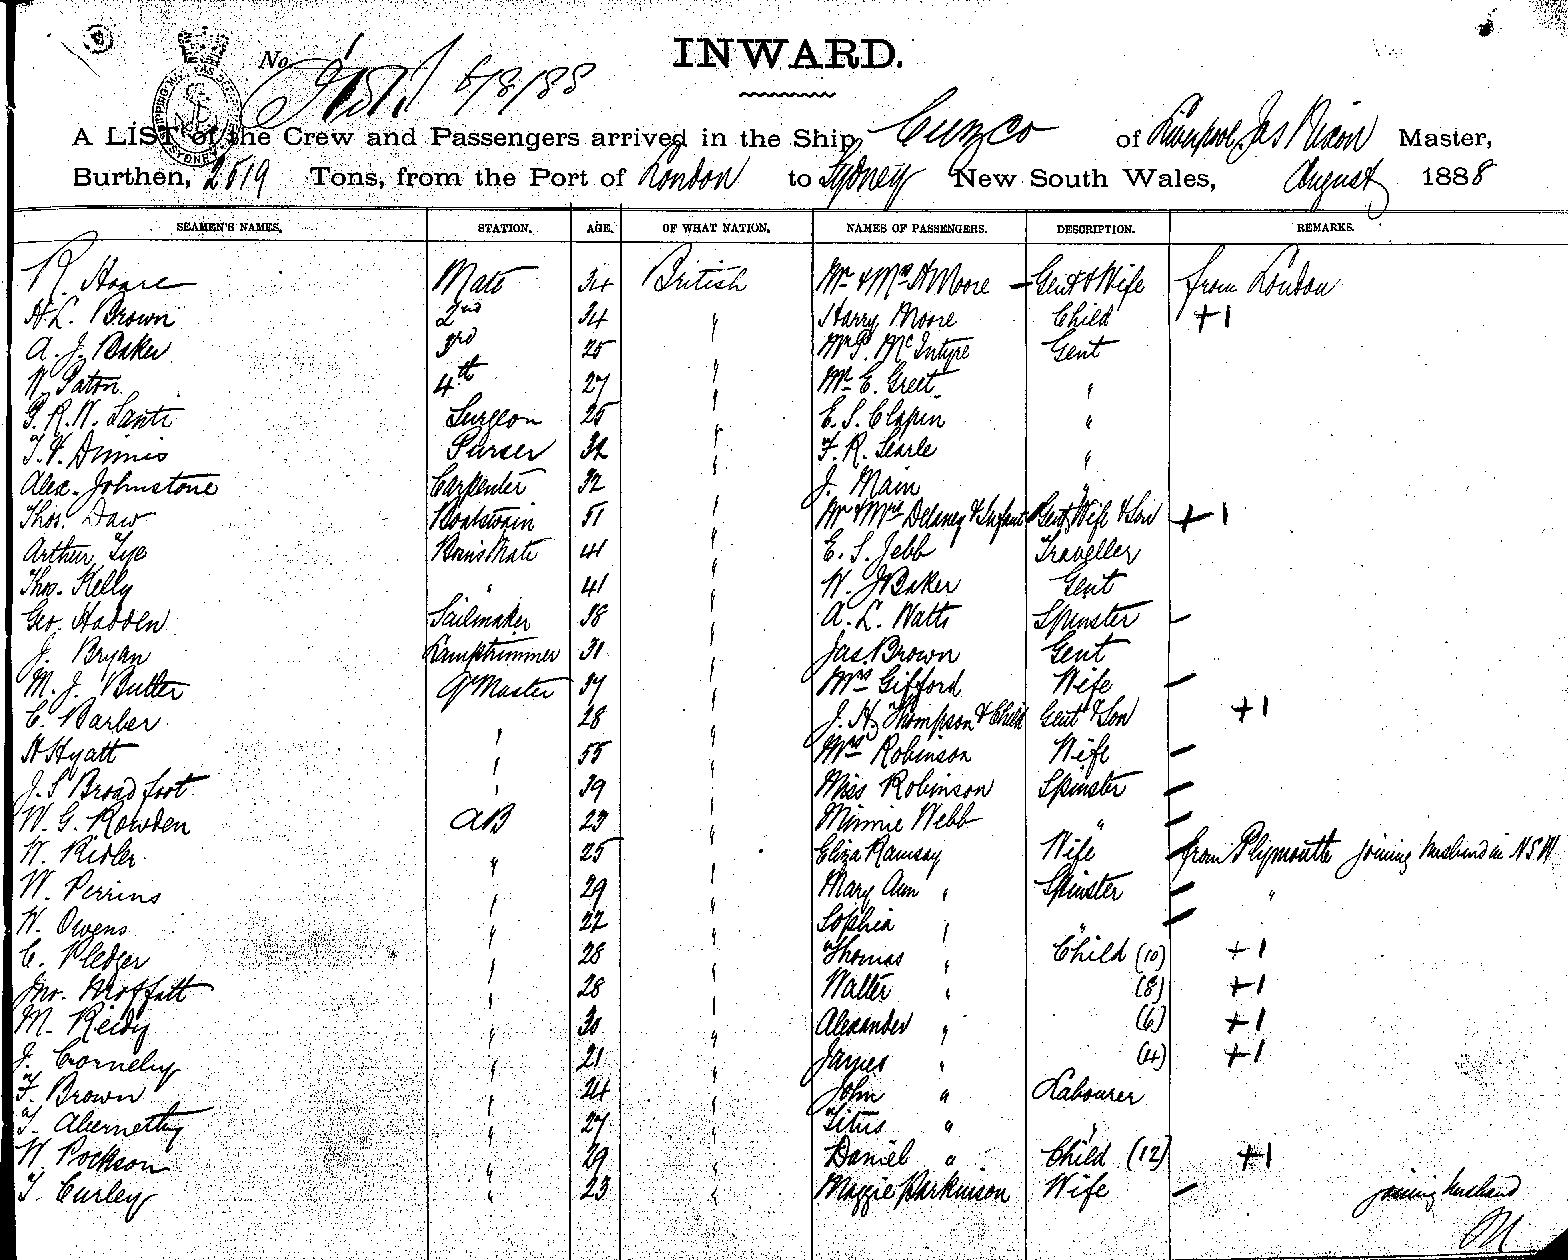 INWARD.
No. 6/8/88
A LIST of the Crew and Passengers arrived in the Ship Cuzco of Liverpool, Jas Nixon Master,
Burthen, 2519 Tons, from the Port of London to Sydney New South Wales, August 1888
SEAMEN'S NAMES. STATION. AGE. OF WHAT NATION. NAMES OF PASSENGERS. DESCRIPTION. REMARKS.
R. Hoare Mate 34 British Mr & Mrs A Moore — Gent & Wife from London
H. L. Brown 2nd 34 " Harry Moore Child +1
A. J. Baker 3rd 25 " McIntyre Gent
W. Paton 4th 27 " Mr E. Greet "
P. R. W. Santi Surgeon 25 " E. S. Clapin "
T. V. Dinnis Purser 32 " F. R. Searle "
Alex. Johnstone Carpenter 32 " J. Main "
Thos. Daw Boatswain 51 " Mr & Mrs Delaney & Infant Gent, Wife & Son +1
Arthur Tye Bosns Mate 41 " E. S. Jebb Traveller
Thos. Kelly " 41 " W. J Baker Gent
Geo. Hadden Sailmaker 38 " A. L. Watts Spinster –
J. Bryan Lamptrimmer 31 " Jas. Brown Gent
M. J. Butler Qr Master 37 " Mrs Gifford Wife –
C. Barber " 28 " J. H. Thompson & Child Gent & Son +1
H Hyatt " 55 " Mrs Robinson Wife –
J. S Broadfoot " 39 " Miss Robinson Spinster –
W. G. Rowden AB 23 " Minnie Webb " –
W. Ridler " 25 " Eliza Ramsay Wife – from Plymouth joining husband in NSW
W. Perrins " 29 " Mary Ann " Spinster – "
W. Owens " 22 " Sophia " " –
C. Pledger " 28 " Thomas " Child (10) +1
Jno. Moffatt " 28 " Walter " (8) +1
M. Reidy " 30 " Alexander " (6) +1
J. Corneby " 21 " James " (4) +1
F. Brown " 24 " John " Labourer
T. Abernethy " 27 " Titus " "
W. Pockson " 29 " Daniel " Child (12) +1
T. Curley " 23 " Maggie Harkinson Wife – joining husband